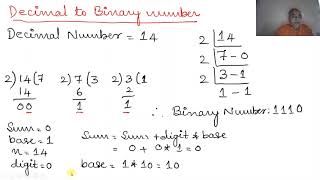 Decimal to Binary number
Decimal Number = 14
2 | 14
2 | 7 - 0
2 | 3 - 1
1 - 1
2)14(7
14
00
2)7(3
6
1
2)3(1
2
1
∴ Binary Number: 1110
Sum = 0
base = 1
n = 14
digit = 0
Sum = Sum + digit * base
= 0 + 0 * 1 = 0
base = 1 * 10 = 10